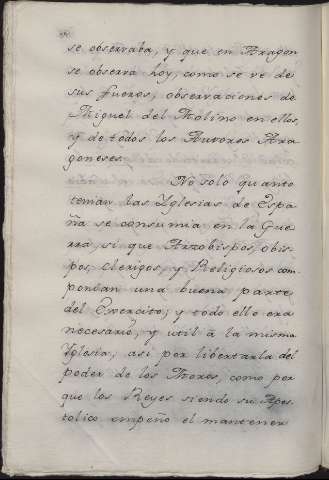 se observaba, y que en Aragon
se observa hoy, como se ve de
sus fueros, observaciones de
Miguel del Molino en ellos,
y de todos los Autores Ara
goneses.
No solo quanto
tenian las Yglesias de Espa
ña se consumia en la Gue
rra, si que Arzobispos, obis
pos, clerigos, y Religiosos com
ponian una buena parte
del Exercito; y todo ello era
necesario, y util à la misma
Yglesia; asi por libertarla del
poder de los Moros, como por
que los Reyes siendo su Apos
tolico empeño el mantener